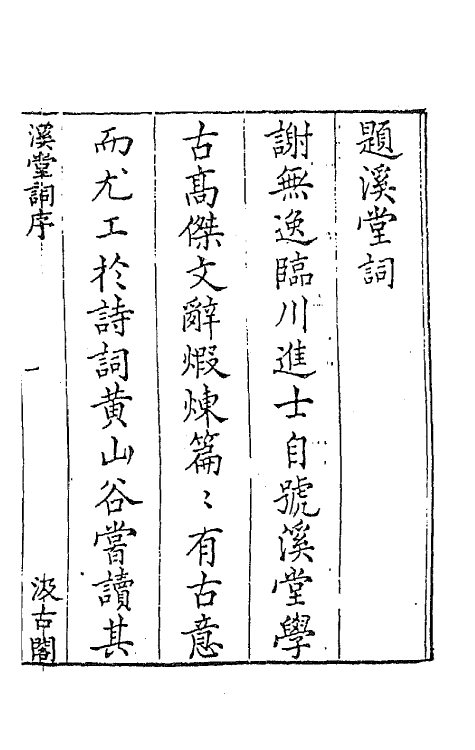 題溪堂詞
謝無逸臨川進士自號溪堂學
古高傑文辭煅煉篇〻有古意
而尤工於詩詞黃山谷嘗讀其
溪堂詞序
一
汲古閣